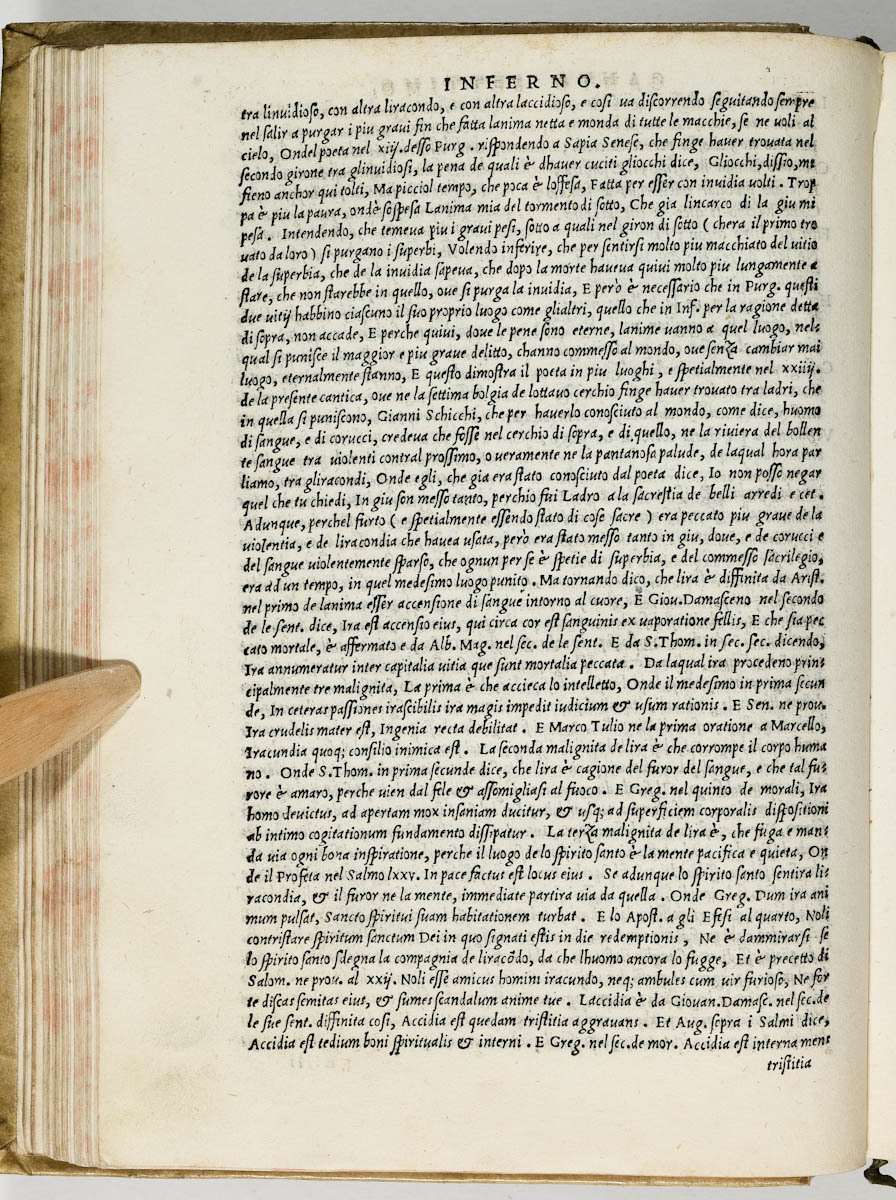 INFERNO.
tra linuidioso, con altra liracondo, e con altra laccidioso, e cosi ua discorrendo seguitando sempre
nel salir a purgar i piu graui fin che fatta lanima netta e monda di tutte le macchie, se ne uoli al
cielo, Ondel poeta nel xiij. desso Purg. rispondendo a Sapia Senese, che finge hauer trouata nel
secondo girone tra glinuidiosi, la pena de quali è dhauer cuciti gliocchi dice, Gliocchi, dissio, mi
fieno anchor qui tolti, Ma picciol tempo, che poca è loffesa, Fatta per esser con inuidia uolti. Trop
pa è piu la paura, ondè sospesa Lanima mia del tormento di sotto, Che gia lincarco di la giu mi
pesa. Intendendo, che temeua piu i graui pesi, sotto a quali nel giron di sotto ( chera il primo tro
uato da loro ) si purgano i superbi, Volendo inferire, che per sentirsi molto piu macchiato del uitio
de la superbia, che de la inuidia sapeua, che dopo la morte haueua quiui molto piu lungamente a
stare, che non starebbe in quello, oue si purga la inuidia, E però è necessario che in Purg. questi
due uitij habbino ciascuno il suo proprio luogo come glialtri, quello che in Inf. per la ragione detta
di sopra, non accade, E perche quiui, doue le pene sono eterne, lanime uanno a quel luogo, nel-
qual si punisce il maggior e piu graue delitto, channo commesso al mondo, oue senza cambiar mai
luogo, eternalmente stanno, E questo dimostra il poeta in piu luoghi, e spetialmente nel xxiiij.
de la presente cantica, oue ne la settima bolgia de lottauo cerchio finge hauer trouato tra ladri, che
in quella si puniscono, Gianni Schicchi, che per hauerlo conosciuto al mondo, come dice, huomo
di sangue, e di corucci, credeua che fosse nel cerchio di sopra, e di quello, ne la riuiera del bollen
te sangue tra uiolenti contral prossimo, o ueramente ne la pantanosa palude, de laqual hora par
liamo, tra gliracondi, Onde egli, che gia era stato conosciuto dal poeta dice, Io non posso negar
quel che tu chiedi, In giu son messo tanto, perchio fui Ladro a la sacrestia de belli arredi e cet.
Adunque, perchel furto ( e spetialmente essendo stato di cose sacre ) era peccato piu graue de la
uiolentia, e de liracondia che hauea usata, però era stato messo tanto in giu, doue, e de corucci e
del sangue uiolentemente sparso, che ognun per se è spetie di superbia, e del commesso sacrilegio,
era ad un tempo, in quel medesimo luogo punito. Ma tornando dico, che lira è diffinita da Arist.
nel primo de lanima esser accensione di sangue intorno al cuore, E Giou. Damasceno nel secondo
de le sent. dice, Ira est accensio eius, qui circa cor est sanguinis ex uaporatione fellis, E che sia pec
cato mortale, è affermato e da Alb. Mag. nel sec. de le sent. E da S. Thom. in sec. sec. dicendo,
Ira annumeratur inter capitalia uitia que sunt mortalia peccata. Da laqual ira procedeno prin-
cipalmente tre malignita, La prima è che accieca lo intelletto, Onde il medesimo in prima secun
de, In ceteras passiones irascibilis ira magis impedit iudicium & usum rationis. E Sen. ne prou.
Ira crudelis mater est, Ingenia recta debilitat. E Marco Tulio ne la prima oratione a Marcello,
Iracundia quoq; consilio inimica est. La seconda malignita de lira è che corrompe il corpo huma
no. Onde S. Thom. in prima secunde dice, che lira è cagione del furor del sangue, e che tal fu-
rore è amaro, perche uien dal fele & assomigliasi al fuoco. E Greg. nel quinto de morali, Ira
homo deuictus, ad apertam mox insaniam ducitur, & usq; ad superficiem corporalis dispositioni
ab intimo cogitationum fundamento dissipatur. La terza malignita de lira è, che fuga e man-
da uia ogni bona inspiratione, perche il luogo de lo spirito santo è la mente pacifica e quieta, On
de il Profeta nel Salmo lxxv. In pace factus est locus eius. Se adunque lo spirito santo sentira li
racondia, & il furor ne la mente, immediate partira uia da quella. Onde Greg. Dum ira ani
mum pulsat, Sancto spiritui suam habitationem turbat. E lo Apost. a gli Efesi al quarto, Noli
contristare spiritum sanctum Dei in quo signati estis in die redemptionis, Ne è dammirarsi se
lo spirito santo sdegna la compagnia de liracōdo, da che lhuomo ancora lo fugge, Et è precetto di
Salom. ne prou. al xxij. Noli esse amicus homini iracundo, neq; ambules cum uir furioso, Ne for
te discas semitas eius, & sumes scandalum anime tue. Laccidia è da Giouan. Damasc. nel sec. de
le sue sent. diffinita cosi, Accidia est quedam tristitia aggrauans. Et Aug. sopra i Salmi dice,
Accidia est tedium boni spiritualis & interni. E Greg. nel sec. de mor. Accidia est interna mens
tristitia